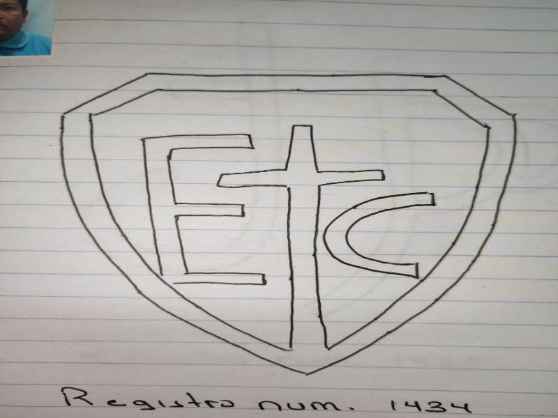 Etc
Registro num. 1434